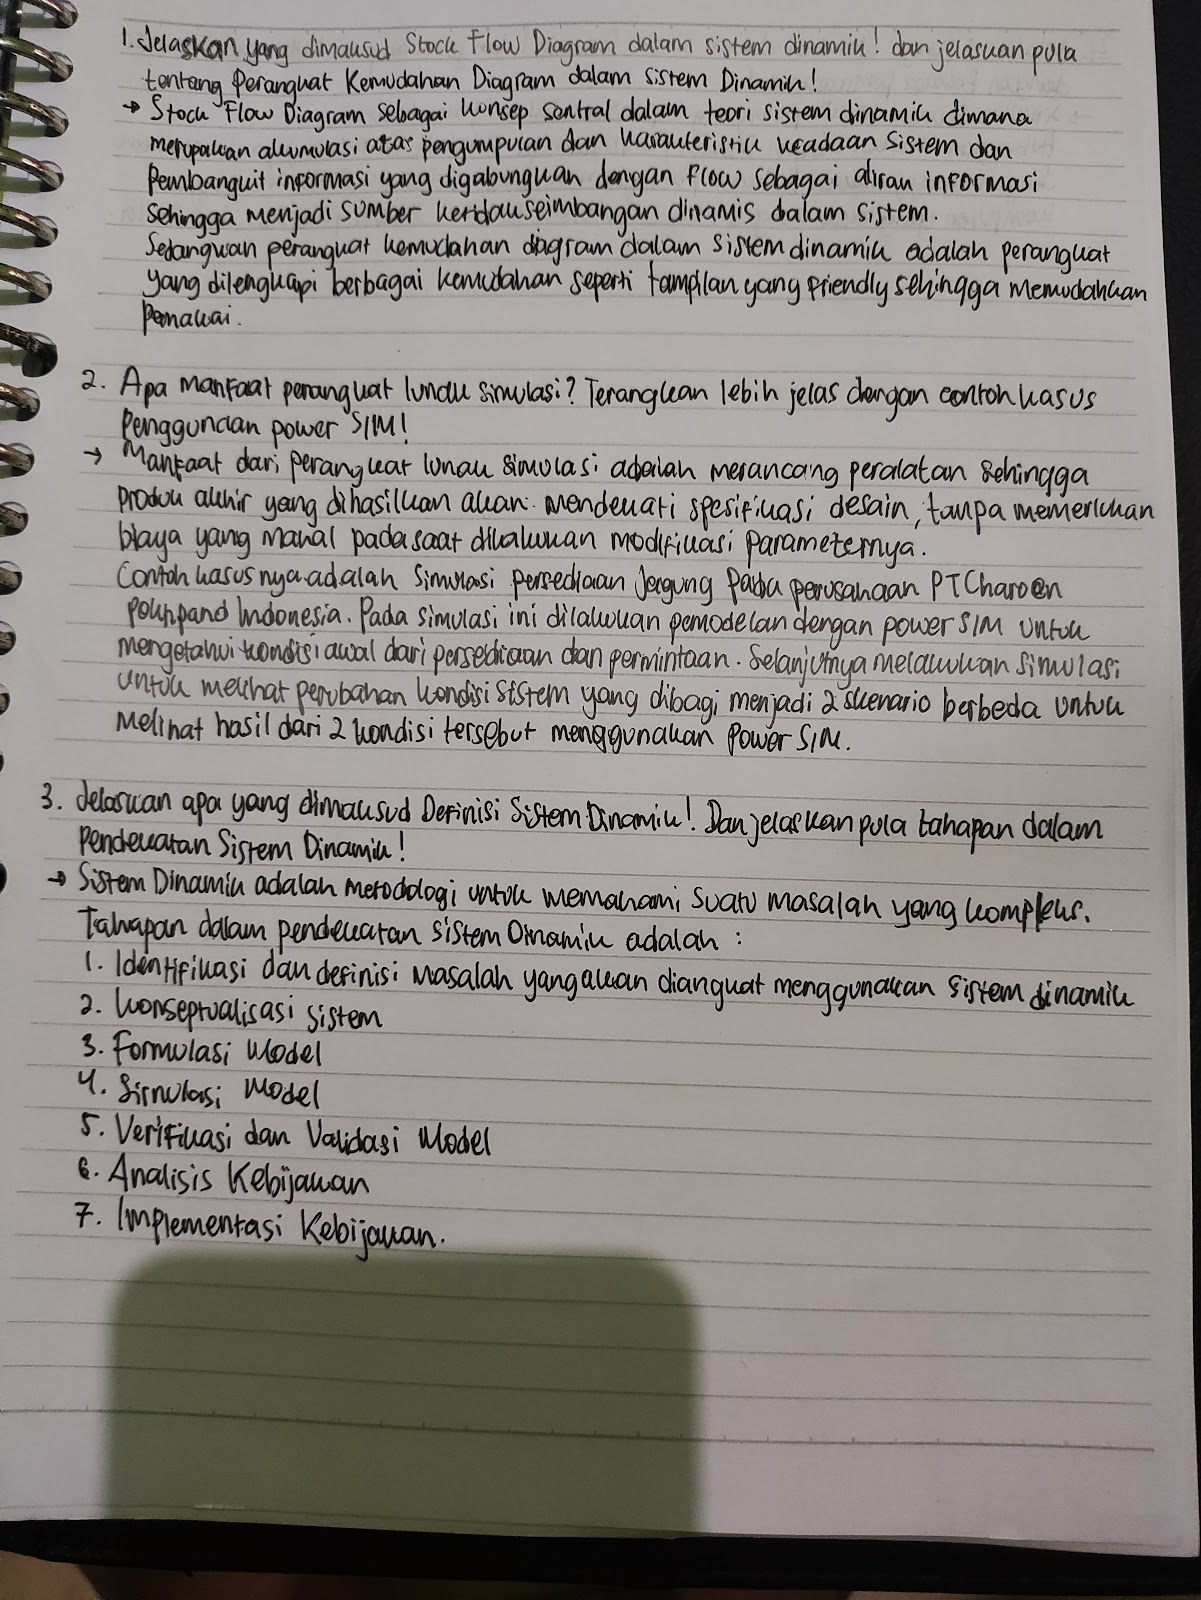 1. Jelaskan yang dimaksud Stock Flow Diagram dalam sistem dinamik! dan jelaskan pula
tentang Perangkat Kemudahan Diagram dalam Sistem Dinamik!
→ Stock Flow Diagram sebagai konsep sentral dalam teori sistem dinamik dimana
merupakan akumulasi atas pengumpulan dan karakteristik keadaan sistem dan
Pembangkit informasi yang digabungkan dengan flow sebagai aliran informasi
Sehingga menjadi sumber ketidakseimbangan dinamis dalam sistem.
Sedangkan perangkat kemudahan diagram dalam sistem dinamik adalah perangkat
yang dilengkapi berbagai kemudahan seperti tampilan yang friendly sehingga memudahkan
Pemakai.
2. Apa manfaat perangkat lunak simulasi? Terangkan lebih jelas dengan contoh kasus
Penggunaan power SIM!
→ Manfaat dari perangkat lunak simulasi adalah merancang peralatan sehingga
Produk akhir yang dihasilkan akan mendekati spesifikasi desain, tanpa memerlukan
biaya yang mahal pada saat dilakukan modifikasi parameternya.
Contoh kasus nya adalah simulasi persediaan Jagung Pada perusahaan PT Charoen
Pokhpand Indonesia. Pada simulasi ini dilakukan pemodelan dengan power SIM untuk
mengetahui kondisi awal dari persediaan dan permintaan. Selanjutnya melakukan simulasi
untuk melihat perubahan kondisi sistem yang dibagi menjadi 2 skenario berbeda untuk
melihat hasil dari 2 kondisi tersebut menggunakan Power SIM.
3. Jelaskan apa yang dimaksud Definisi Sistem Dinamik! Dan jelaskan pula tahapan dalam
Pendekatan Sistem Dinamik!
→ Sistem Dinamik adalah metodologi untuk memahami suatu masalah yang kompleks.
Tahapan dalam pendekatan sistem Dinamik adalah :
1. Identifikasi dan definisi masalah yang akan diangkat menggunakan sistem dinamik
2. Konseptualisasi sistem
3. Formulasi Model
4. Simulasi Model
5. Verifikasi dan Validasi Model
6. Analisis Kebijakan
7. Implementasi Kebijakan.